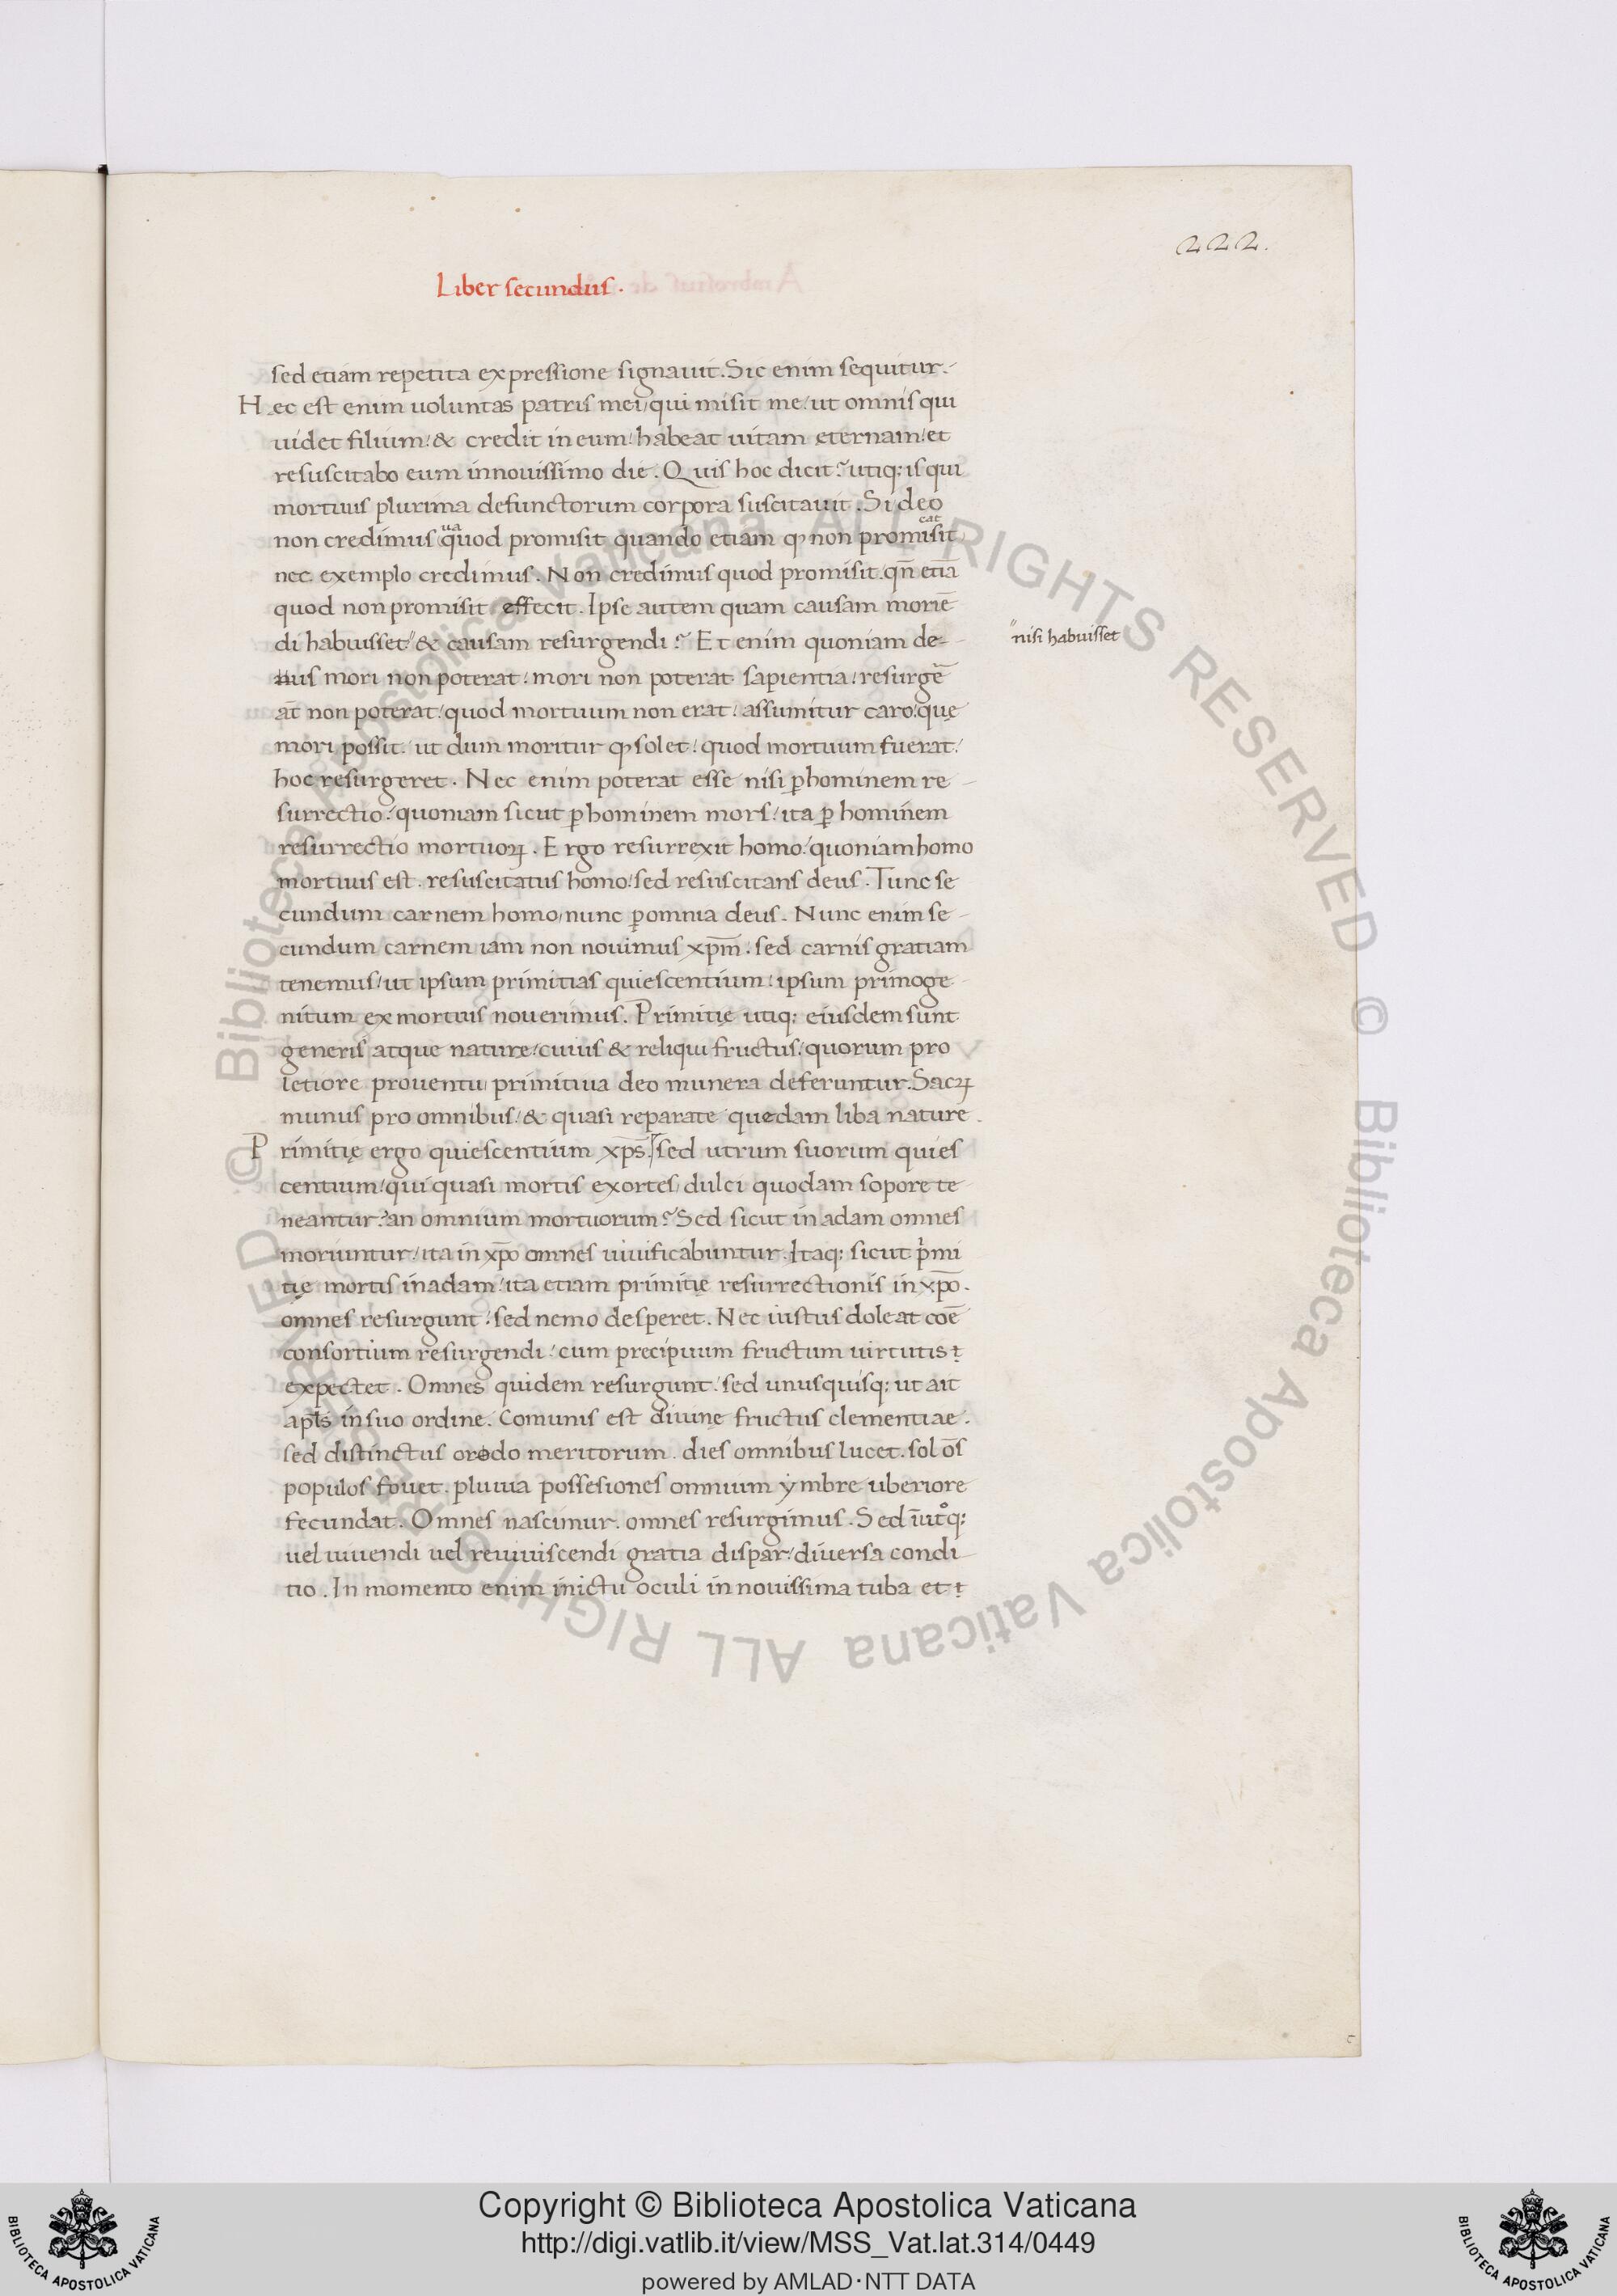 222.
Liber secundus.
sed etiam repetita expressione signauit. Sic enim sequitur.
Hec est enim uoluntas patris mei/ qui misit me/ ut omnis qui
uidet filium/ & credit in eum/ habeat uitam eternam/ et
resuscitabo eum in nouissimo die. Quis hoc dicit? utiq; is qui
mortuus plurima defunctorum corpora suscitauit. Si deo
non credimus quod promisit quando etiam ꝙ non promisit
ua
cat
nec exemplo credimus. Non credimus quod promisit. qn̄ etiā
quod non promisit effecit. Ipse autem quam causam moriē
di habuisset " & causam resurgendi? Et enim quoniam de-
" nisi habuisset
us mori non poterat/ mori non poterat sapientia/ resurgē
at̄ non poterat/ quod mortuum non erat/ assumitur caro/ quę
mori possit/ ut dum moritur ꝙ solet/ quod mortuum fuerat/
hoc resurgeret. Nec enim poterat esse nisi ꝑ hominem re-
surrectio/ quoniam sicut ꝑ hominem mors/ ita ꝑ hominem
resurrectio mortuoꝝ. Ergo resurrexit homo/ quoniam homo
mortuus est. resuscitatus homo/ sed resuscitans deus. Tunc se
cundum carnem homo/ nunc ꝑ omnia deus. Nunc enim se-
cundum carnem iam non nouimus xp̄m. sed carnis gratiam
tenemus/ ut ipsum primitias quiescentium/ ipsum primoge-
nitum ex mortuis nouerimus. Primitię utiq; eiusdem sunt
generis atque nature/ cuius & reliqui fructus/ quorum pro
letiore prouentu primitiua deo munera deferuntur. Sacꝝ
munus pro omnibus/ & quasi reparate quedam liba nature.
Primitię ergo quiescentium xp̄s. sed utrum suorum quies
centium/ qui quasi mortis exortes/ dulci quodam sopore te
neantur? an omnium mortuorum? Sed sicut in adam omnes
moriuntur/ ita in xp̄o omnes uiuificabuntur. Itaq; sicut pͥmi
tię mortis in adam/ ita etiam primitię resurrectionis in xp̄o.
omnes resurgunt/ sed nemo desperet. Nec iustus doleat coē
consortium resurgendi/ cum precipuum fructum uirtutis t
expectet. Omnes quidem resurgunt/ sed unusquisq; ut ait
apl̄s in suo ordine. Comunis est diuinę fructus clementiae.
sed distinctus orodo meritorum. dies omnibus lucet. sol oēs
populos fouet. pluuia possesiones omnium ymbre uberiore
fecundat. Omnes nascimur. omnes resurgimus. Sed in utͦq;
uel uiuendi uel reuiuiscendi gratia dispar/ diuersa condi
tio. In momento enim in ictu oculi in nouissima tuba et t
Copyright © Biblioteca Apostolica Vaticana
http://digi.vatlib.it/view/MSS_Vat.lat.314/0449
powered by AMLAD·NTT DATA
BIBLIOTECA APOSTOLICA VATICANA
BIBLIOTECA APOSTOLICA VATICANA
© Biblioteca Apostolica Vaticana ALL RIGHTS RESERVED © Biblioteca Apostolica Vaticana ALL RIGHTS RESERVED